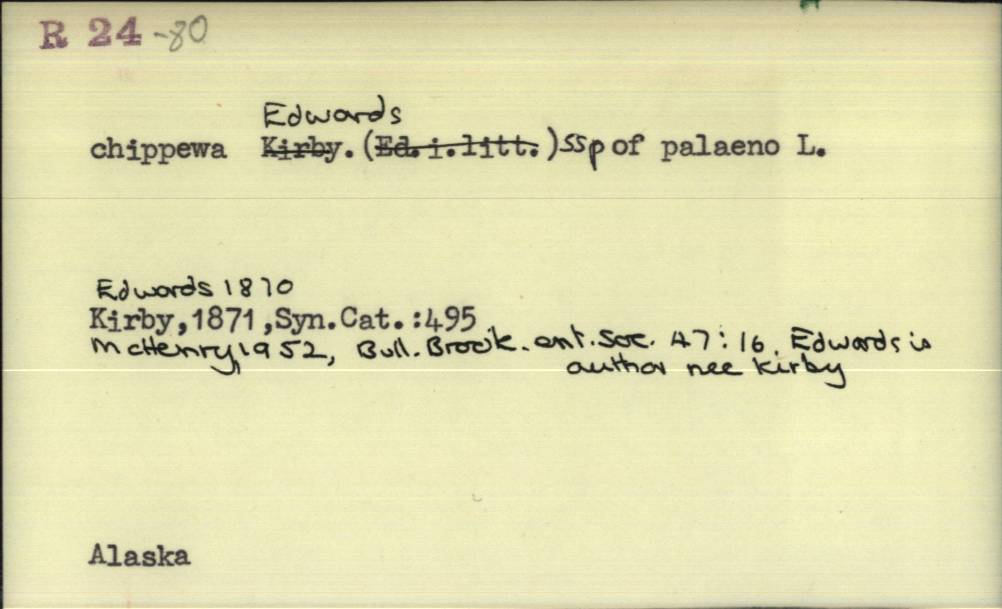 R 24 -80
Edwards
chippewa Kirby. (Ed.i.litt.) ssp of palaeno L.
Edwards 1870
Kirby,1871,Syn.Cat.:495
McHenry 1952, Bull. Brook. ent. Soc. 47:16. Edwards is
author nec Kirby
Alaska